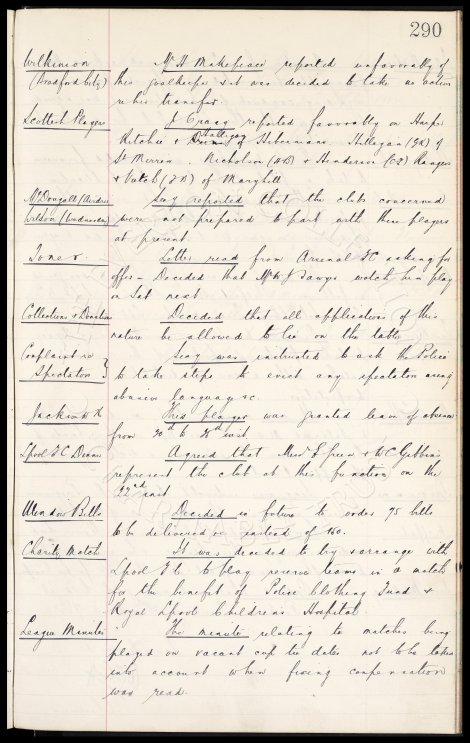 290
Wilkinson Mr H Makepeace reported unfavorably of
(Bradford City) this goalkeeper & it was decided to take no action
re his transfer.
Scottish Players J Craag reported favorably on Harper
Ritchie & Halligan of Hibernians. Hilligan (GK) of
St Mirren. Nicholson & Henderson Rangers
& Veitch of Maryhill
McDougall (Airdrie) Secy reported that the clubs concerned
Wilson (Wednesday) were not prepared to part with these players
at present.
Jones. Letter read from Arsenal FC asking for
offer – Decided that Mr W J Sawyer watch him play
on Sat next
Collections & Donations Decided that all applications of this
nature be allowed to lie on the table
Complaint re Secy was instructed to ask the Police
Spectators to take steps to evict any spectators using
abusive language &c.
Jackson H This player was granted leave of absence
from to inst
Lpool FC Dinner Agreed that Messrs Green & W C Gibbins
represent the club at this function on the
22nd inst
Window Bills Decided in future to order 75 bills
to be delivered on instead of 150.
Charity Match It was decided to try & arrange with
Lpool F C to play reserve teams in a match
for the benefit of Police Clothing Fund &
Royal Lpool Children's Hospital.
League Minutes The minute relating to matches being
played on vacant cup tie dates not to be taken
into account when fixing compensation
was read.